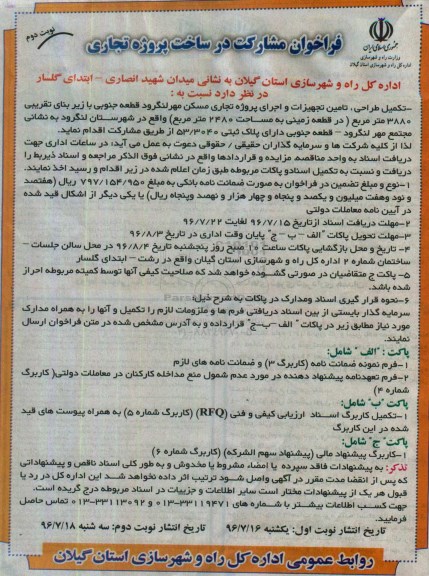 نوبت دوم
فراخوان مشارکت در ساخت پروژه تجاری
جمهوری اسلامی ایران
وزارت راه و شهرسازی
اداره کل راه و شهرسازی استان گیلان
اداره کل راه و شهرسازی استان گیلان به نشانی میدان شهید انصاری – ابتدای گلسار
در نظر دارد نسبت به :
-تکمیل طراحی ، تامین تجهیزات و اجرای پروژه تجاری مسکن مهرلنگرود قطعه جنوبی با زیر بنای تقریبی
۳۸۸۰ متر مربع ( در قطعه زمینی به مساحت ۲۴۸۰ متر مربع) واقع در شهرستان لنگرود به نشانی
مجتمع مهر لنگرود – قطعه جنوبی دارای پلاک ثبتی ۵۳/۳۰۴۰ از طریق مشارکت اقدام نماید.
لذا از کلیه شرکت ها و سرمایه گذاران حقیقی / حقوقی دعوت به عمل می آید، در ساعات اداری جهت
دریافت اسناد به واحد مناقصه مزایده و قراردادها واقع در نشانی فوق الذکر مراجعه و اسناد ذیربط را
دریافت و نسبت به تکمیل اسنادو پاکات مربوطه طبق زمان اعلام شده در زیر اقدام و رسید اخذ نمایند.
۱-نوع و مبلغ تضمین در فراخوان به صورت ضمانت نامه بانکی به مبلغ ۷۹۷/۱۵۴/۹۵۰ ریال (هفتصد
و نود وهفت میلیون و یکصد و پنجاه و چهار هزار و نهصد وپنجاه ریال) یا یکی دیگر از اشکال قید شده
در آیین نامه معاملات دولتی
۲-مهلت دریافت اسناد ازتاریخ ۹۶/۷/۱۵ لغایت ۹۶/۷/۲۲
۳-مهلت تحویل پاکات "الف – ب – ج" پایان وقت اداری در تاریخ ۹۶/۸/۳
۴- تاریخ و محل بازگشایی پاکات ساعت صبح روز پنجشنبه تاریخ ۹۶/۸/۴ در محل سالن جلسات –
ساختمان شماره ۲ اداره کل راه و شهرسازی استان گیلان واقع در رشت – ابتدای گلسار
۵- پاکت ج متقاضیان در صورتی گشوده خواهد شد که صلاحیت کیفی آنها توسط کمیته مربوطه احراز
شده باشد.
۶-نحوه قرار گیری اسناد ومدارک در پاکات به شرح ذیل:
سرمایه گذار بایستی از بین اسناد دریافتی فرم ها و ملزومات لازم را تکمیل و آنها را به همراه مدارک
مورد نیاز مطابق زیر در پاکات "الف–ب–ج" قرارداده و به آدرس مشخص شده در متن فراخوان ارسال
نمایند.
پاکت : "الف" شامل:
۱-فرم نمونه ضمانت نامه (کاربرگ ۳) و ضمانت نامه های لازم
۲-فرم تعهدنامه پیشنهاد دهنده در مورد عدم شمول منع مداخله کارکنان در معاملات دولتی( کاربرگ
شماره ۴)
پاکت "ب" شامل:
۱-تکمیل کاربرگ اسناد ارزیابی کیفی و فنی (RFQ) (کاربرگ شماره ۵) به همراه پیوست های قید
شده در این کاربرگ
پاکت "ج" شامل:
۱-کاربرگ پیشنهاد مالی (پیشنهاد سهم الشرکه) (کاربرگ شماره ۶)
تذکر: به پیشنهادات فاقد سپرده یا امضاء مشروط یا مخدوش و به طور کلی اسناد ناقص و پیشنهاداتی
که پس از انقضا مدت مقرر در آگهی واصل شود ترتیب اثر داده نخواهد شد. این اداره کل در رد یا
قبول هر یک از پیشنهادات مختار است سایر اطلاعات و جزییات در اسناد مربوطه درج گردیده است.
جهت کسب اطلاعات بیشتر با شماره های ۳۳۱۱۹۴۷۱-۰۱۳ و ۳۳۱۱۳۰۹۲-۰۱۳ تماس حاصل
فرمایید.
تاریخ انتشار نوبت اول: یکشنبه ۹۶/۷/۱۶ تاریخ انتشار نوبت دوم: سه شنبه ۹۶/۷/۱۸
روابط عمومی اداره کل راه و شهرسازی استان گیلان